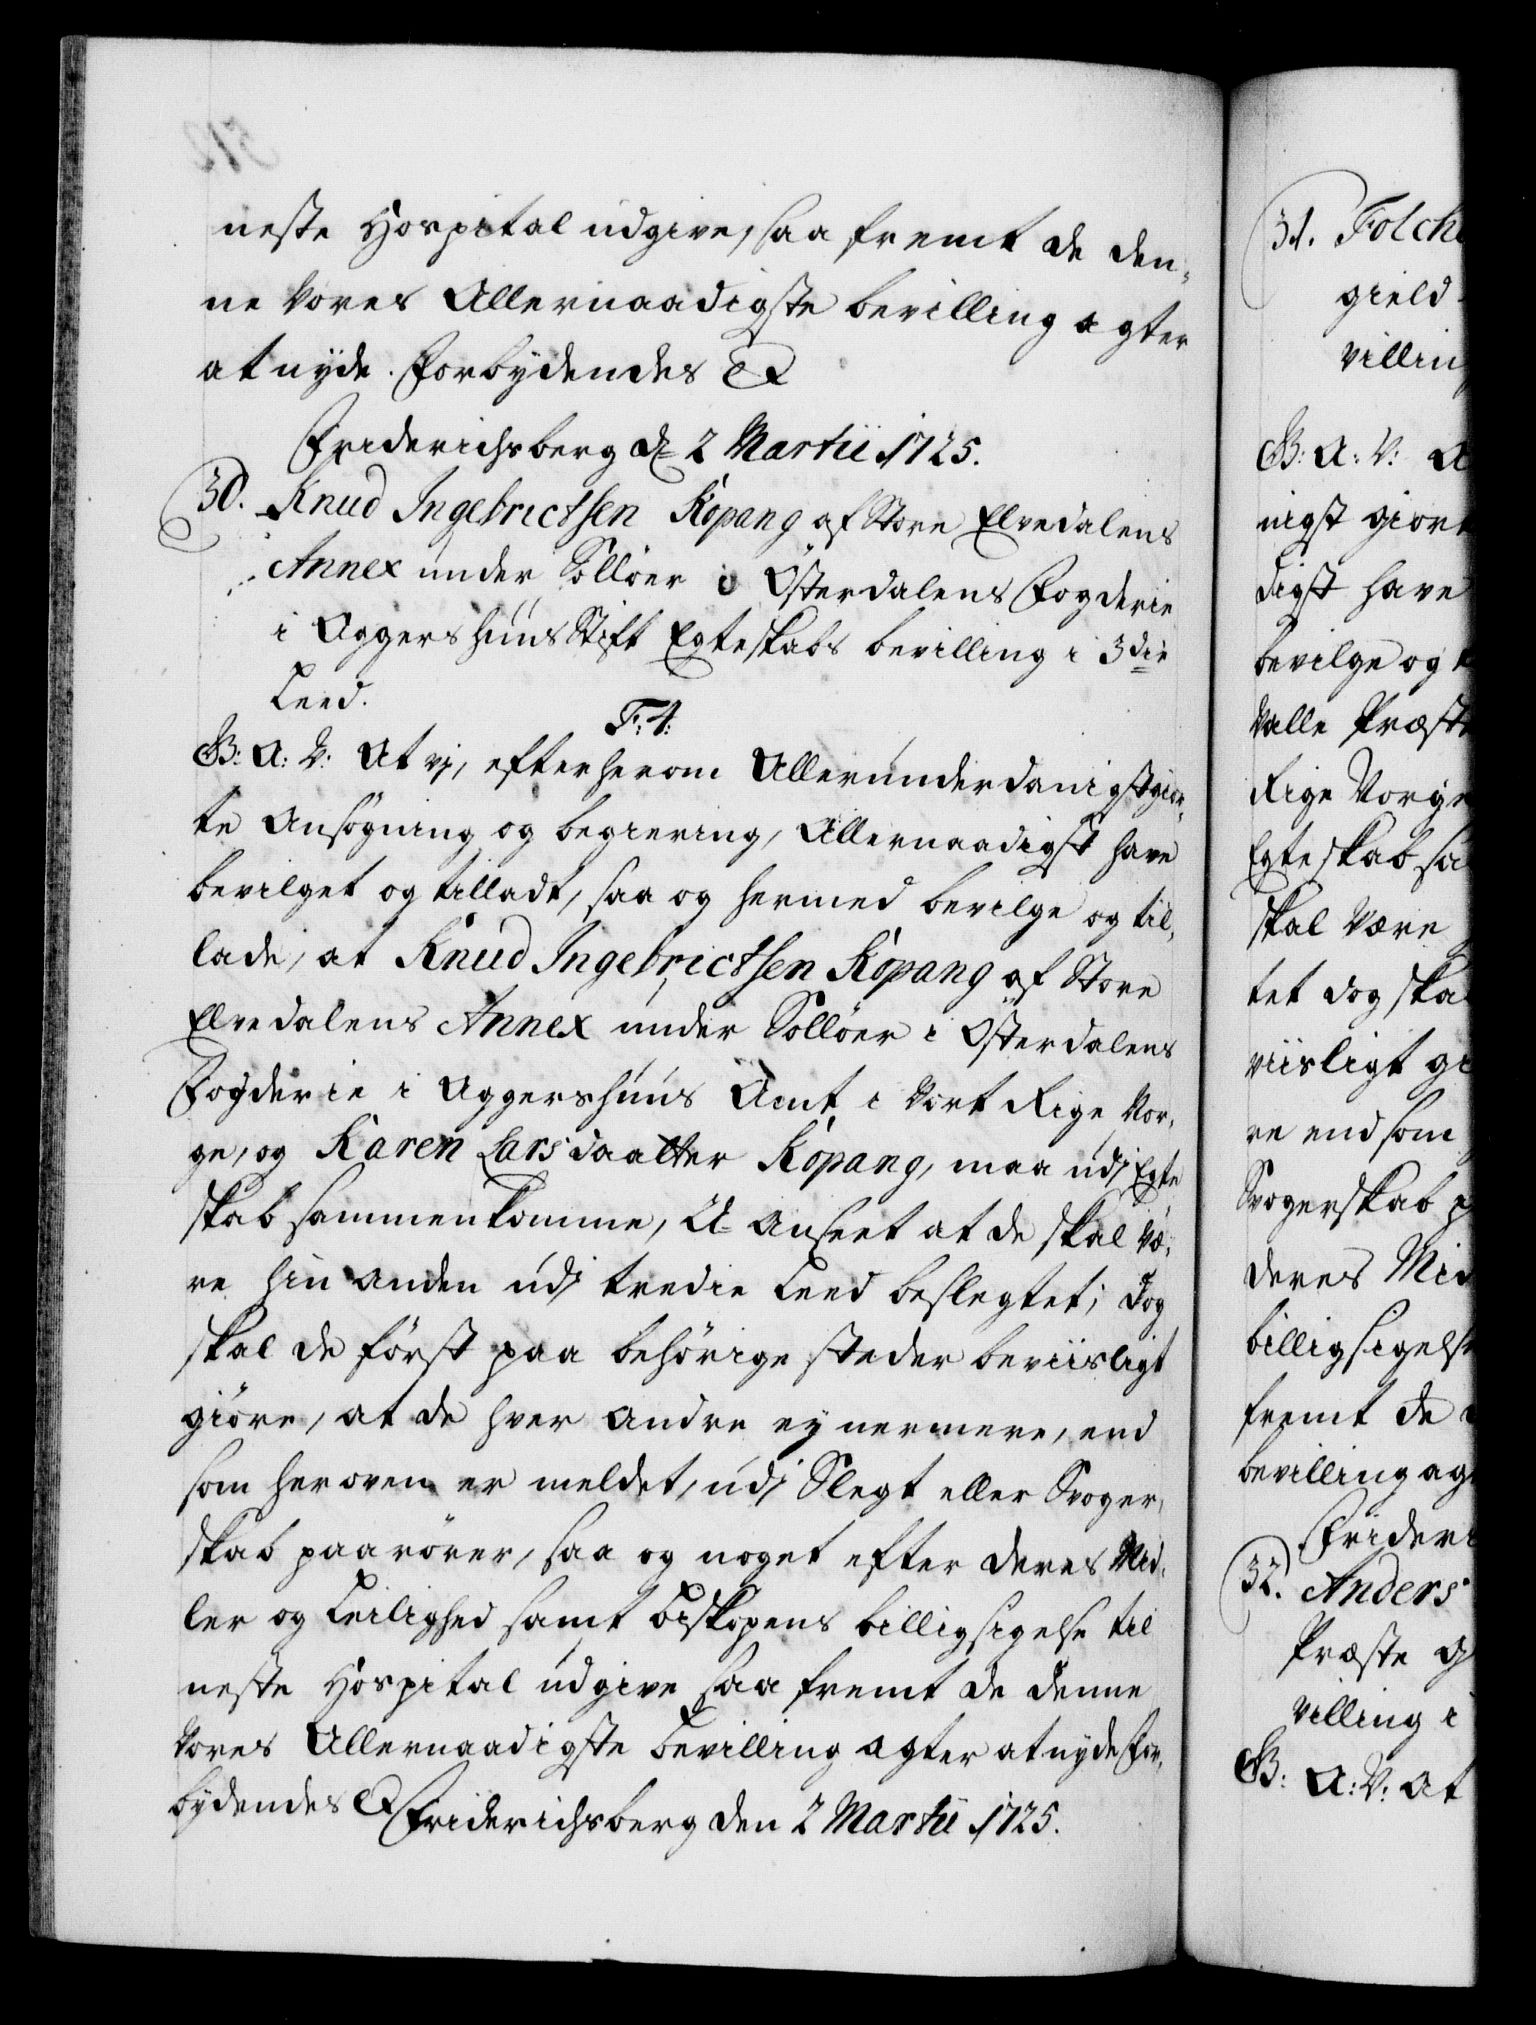 neste Hospital udgive, saa fremt de den-
ne Vores Allernaadigste bevilling agter
at nyde. Forbydendes &
Friderichsberg d. 2 Martii 1725.
30. Knud Ingebrictsen Kopang af Store Elvedalens
Annex under Sollöer i Österdalens Fogderie
i Aggershuus Stift Egteskabs bevilling i 3die
Leed.
F: 4:
G: A: V: At vj, efter herom Allerunderdanigst gior-
te Ansögning og begiering, Allernaadigst have
bevilget og tilladt, saa og hermed bevilge og til-
lade, at Knud Ingebrictsen Kopang af Store
Elvedalens Annex under Sollöer i Österdalens
Fogderie i Aggershuus Amt i Vort Rige Nor-
ge, og Karen Larsdaatter Kopang, maa udj Egte
skab sammenkomme, U-Anseet at de skal Væ-
re hin anden udj tredie Leed beslegtet; dog
skal de först paa behörige steder beviisligt
giöre, at de hver Andre ey nermere, end
som her oven er meldet, udj Slegt eller Svoger-
skab paarörer, saa og noget efter deres Mid-
ler og Leilighed samt biskopens billigsigelse til
neste Hospital udgive saa fremt de denne
Vores Allernaadigste bevilling agter at nyde For-
bydendes & Friderichsberg den 2 Martii 1725.
31. Folch
gield-
villin
G: A: V: A
nigst giort
digst have
bevilge og
Valle Præst
Rige Norge
Egteskab sa
skal Være
tet dog ska
viisligt gi
re end som
Svogerskab p
deres Mid
billigsigelse
fremt de
bevilling agt
Frideri
32. Anders
Præste g
villing i
G: A: V: At